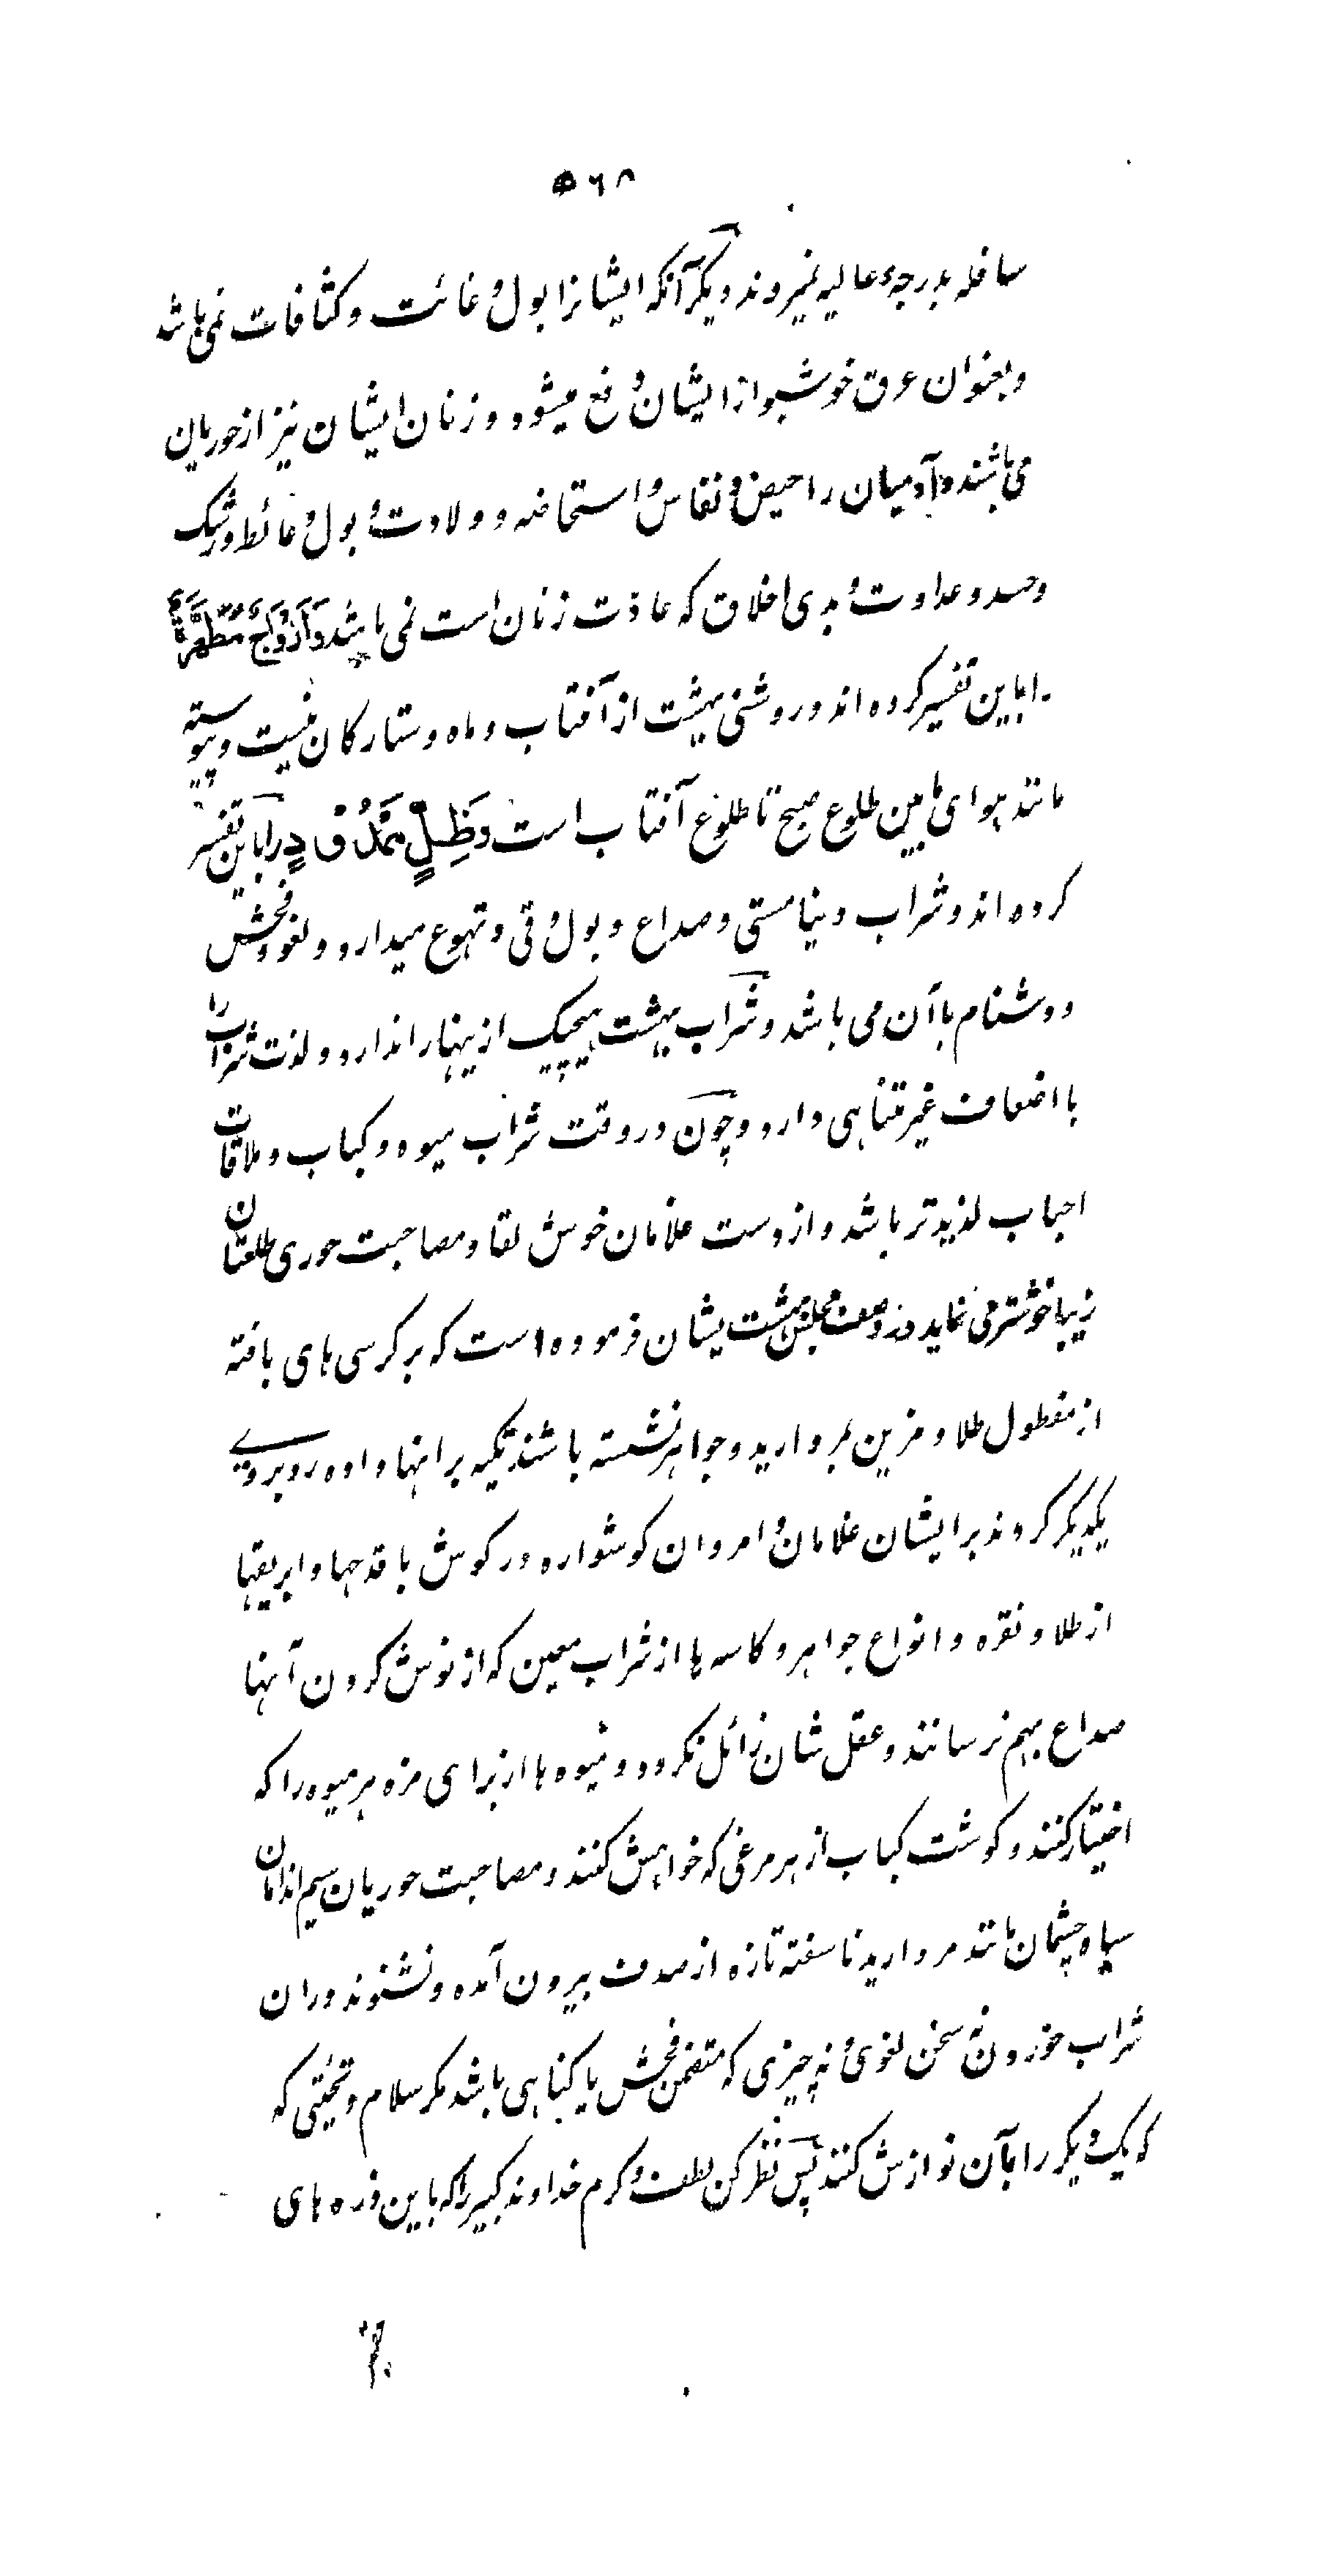 ۵۶۸
سافله بدرجهٔ عالیه نمیروند و یکر آنکه ایشانرا بول و غائت و کثافات نمی باشد
و بعنوان عرق خوشبو از ایشان دفع میشود و زنان ایشان نیز از حوریان
می باشند و آدمیان را حیض و نفاس و استحاضه و ولادت و بول و غائط و رشک
و حسد و عداوت و بدی اخلاق که عادت زنان است نمی باشد وَاَزْوَاجٌ مُطَهَّرَةٌ
را باین تفسیر کرده اند و روشنی بهشت از آفتاب و ماه و ستارکان نیست و پیوسته
مانند هوای مابین طلوع صبح تا طلوع آفتاب است وَظِلٍّ مَمْدُودٍ را باین تفسیر
کرده اند و شراب دینا مستی و صداع و بول و قی و تهوع میدارد و لغو و فحش
و دشنام با آن می باشد و شراب بهشت هیچیک از ینهارا ندارد و لذت شراب را
با اضعاف غیر متناهی دارد و چون در وقت شراب میوه و کباب و ملاقات
احباب لذیدتر باشد و از دست غلامان خوش لقا و مصاحبت حوری طلعتان
زیبا خوشتر می نماید در وصف مجلس بهشت یشان فرموده است که بر کرسی های بافته
از مفطول طلا و مزین بمروارید و جواهر نشسته باشند تکیه بر انها داده روبروے
یکدیکر کردند بر ایشان غلامان و امردان کوشواره در کوش با قدحها و ابریقها
از طلا و نقره و انواع جواهر و کاسه ها از شراب معین که از نوش کردن آنها
صداع بهم نرسانند و عقل شان زائل نکردد و میوه ها از برای مزه هر میوه را که
اختیار کنند و کوشت کباب از هر مرغی که خواهش کنند و مصاحبت حوریان سیم اندامان
سیاه چشمان مانند مروارید ناسفته تازه از صدف بیرون آمده و نشنوند در ان
شراب خوردن نه سخن لغوی و نه چیزی که متضمن فحش یا کناهی باشد مکر سلام و تحیتی که
که یک دیکر را بآن نوازش کنند پس نظر کن لطف و کرم خداوند کبیر را که باین ذره های